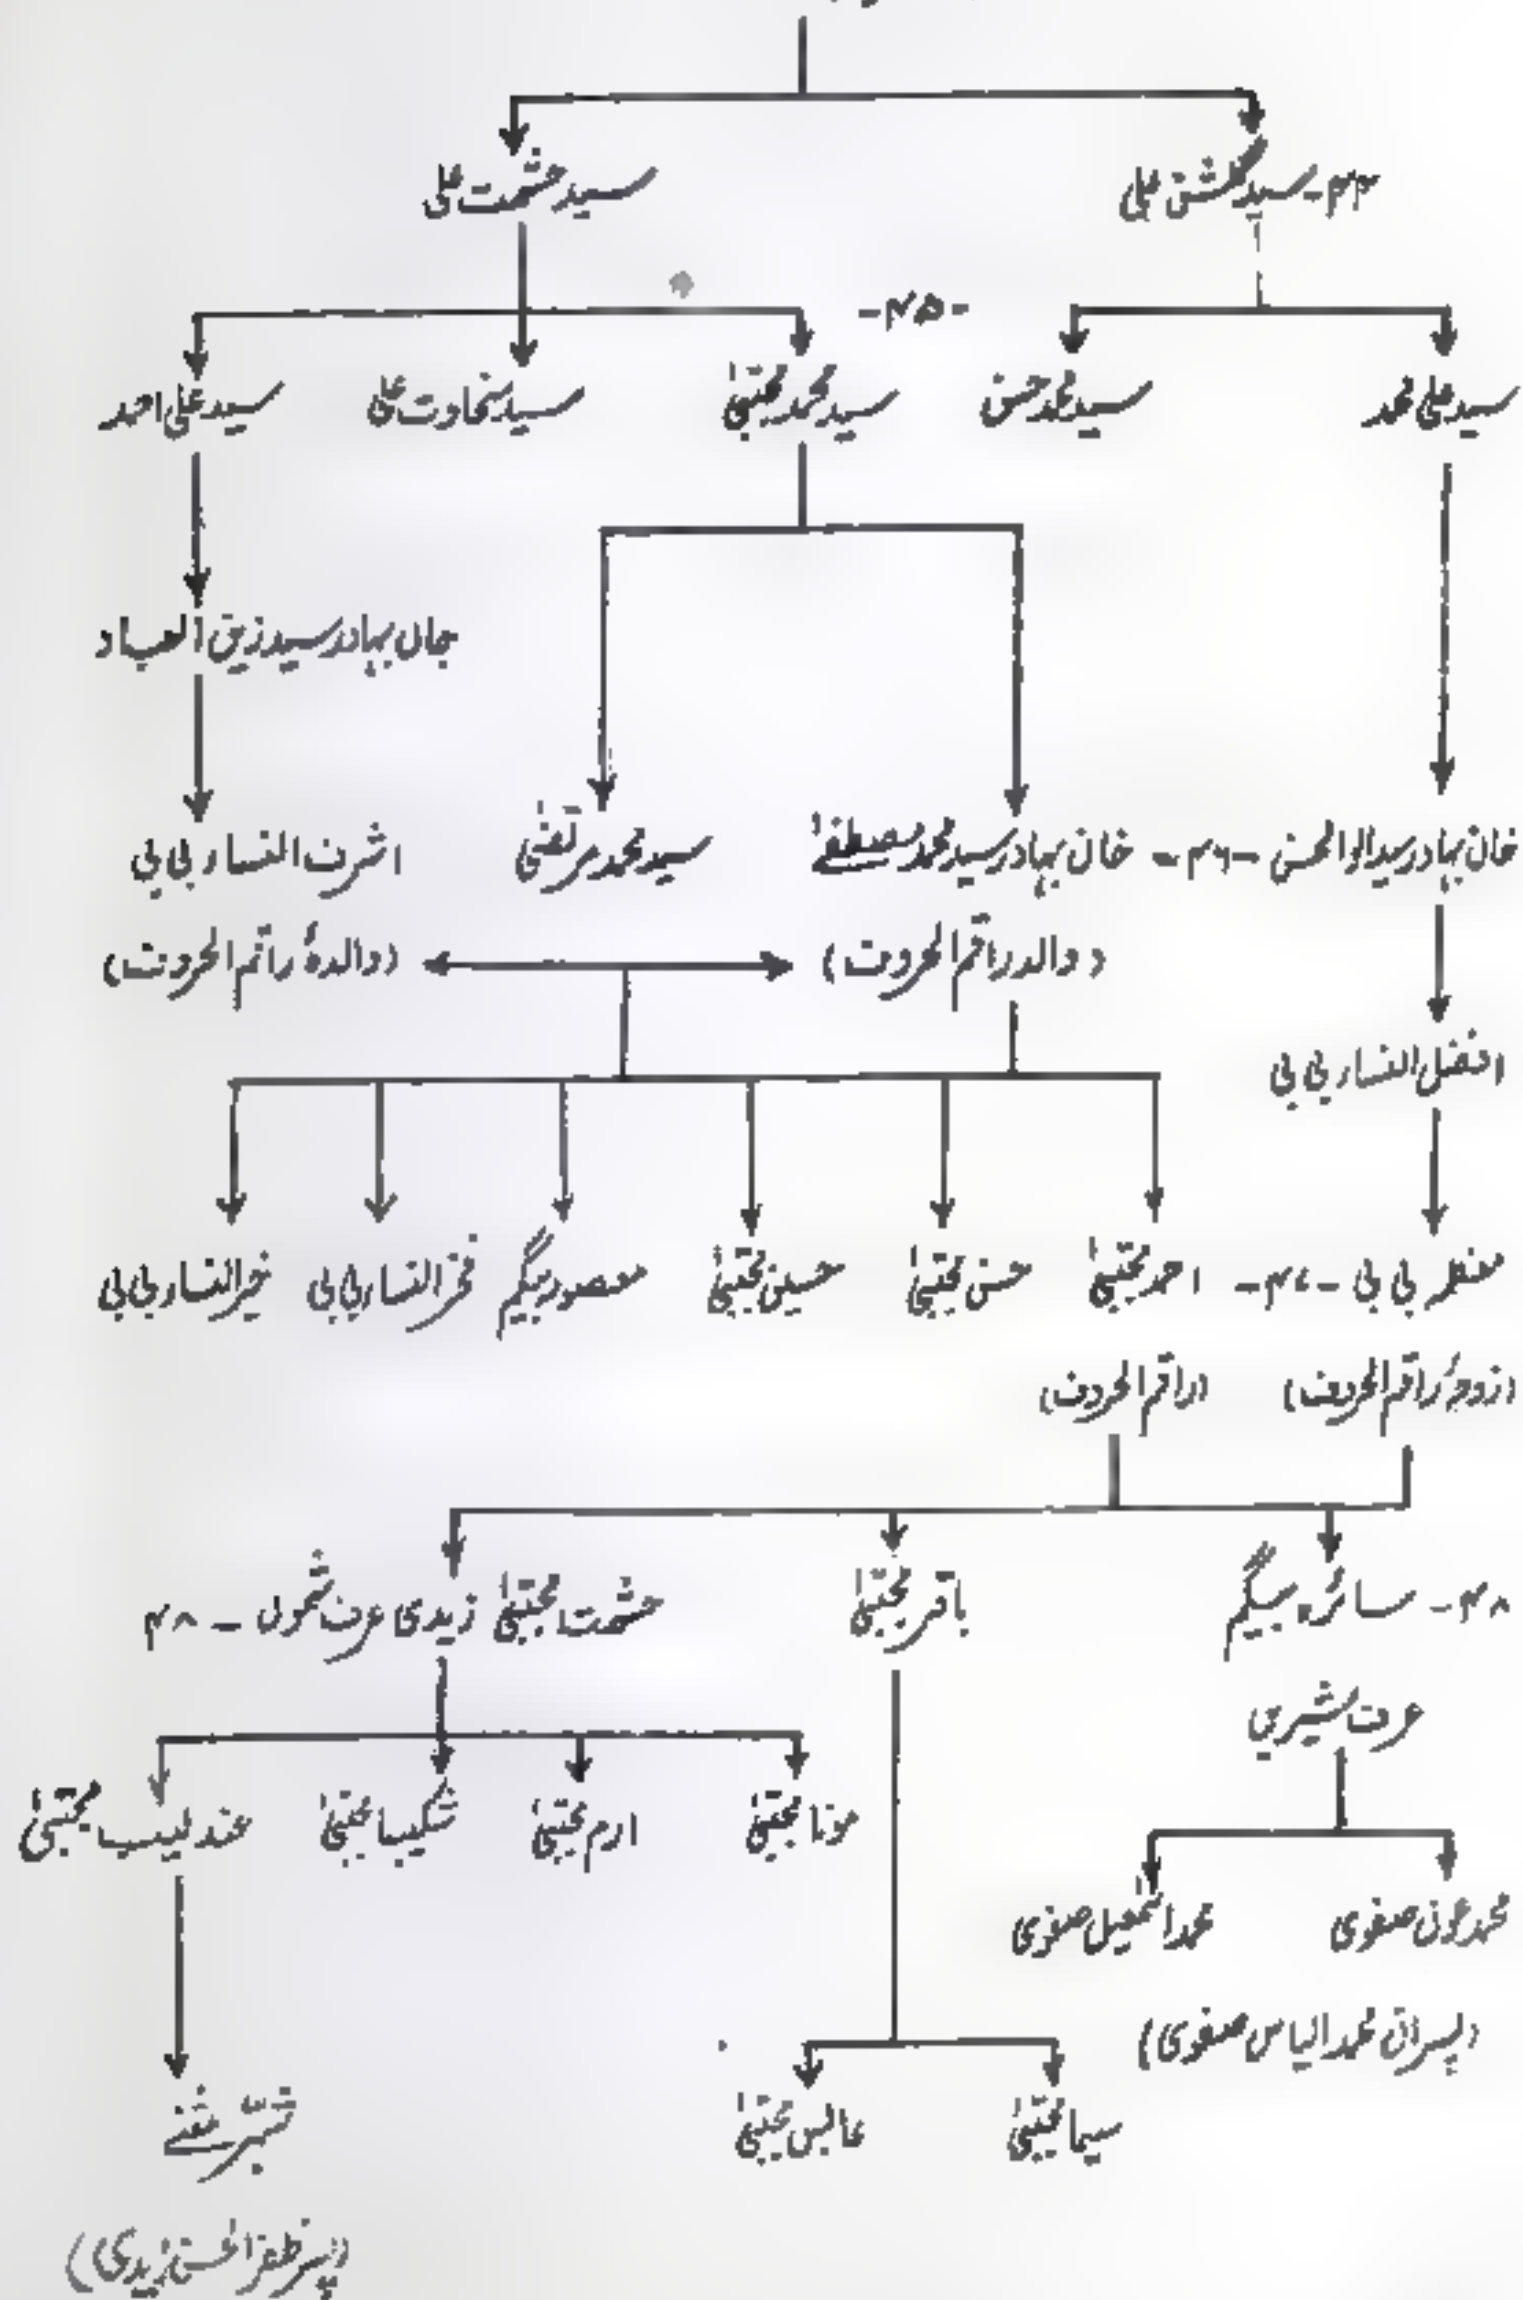 ۴۴- سید گلشن علی
سید حشمت علی
-۴۵-
سید علی محمد
سید محمد حسن
سید محمد مجتبیٰ
سید سخاوت علی
سید علی احمد
جان بہادر سید زین العباد
خان بہادر سید ابوالحسن -۴۶- خان بہادر سید محمد مصطفےٰ
سید محمد مرتضیٰ
اشرف النساء بی بی
(والد راقم الحروف)
(والدۂ راقم الحروف)
افضل النساء بی بی
بی بی -۴۷- احمد مجتبیٰ
حسن مجتبیٰ
حسین مجتبیٰ
معصومہ بیگم
فخر النساء بی بی
خیر النساء بی بی
(زوجۂ راقم الحروف)
(راقم الحروف)
۴۸- سائرہ بیگم
باقر مجتبیٰ
حشمت مجتبیٰ زیدی عرف شمون - ۴۸
عرف شیریں
مونا مجتبیٰ
ارم مجتبیٰ
شکیبا مجتبیٰ
عندلیب مجتبیٰ
محمد عون صفوی
محمد اسمٰعیل صفوی
(پسران محمد الیاس صفوی)
سیما مجتبیٰ
عابس مجتبیٰ
(پسر ظفر الحسن زیدی)